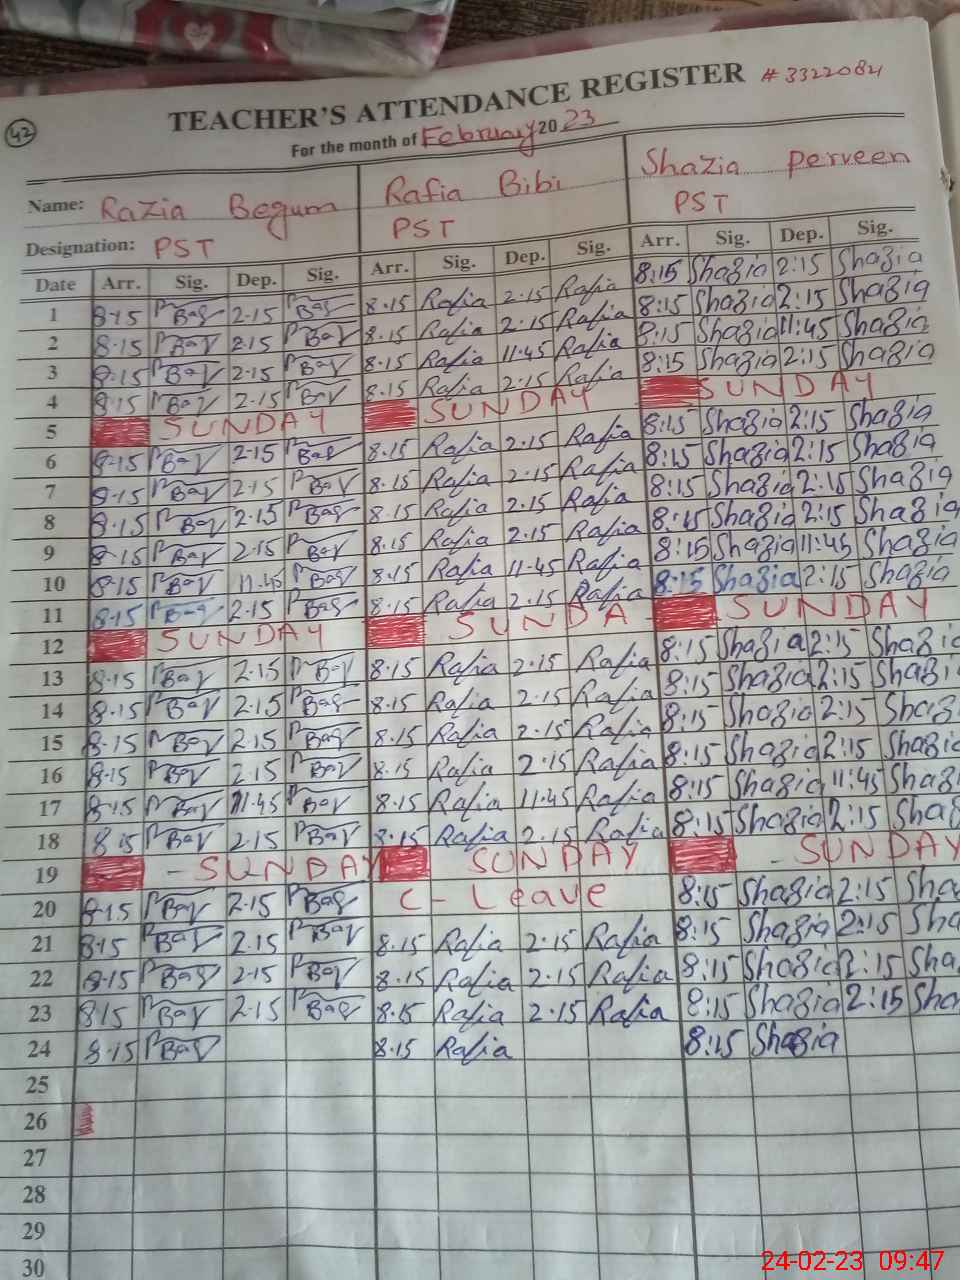 42
TEACHER'S ATTENDANCE REGISTER # 3322084
For the month of February 2023
Name: Razia Begum Rafia Bibi Shazia Perveen
Designation: PST PST PST
Date Arr. Sig. Dep. Sig. Arr. Sig. Dep. Sig. Arr. Sig. Dep. Sig.
1 8-15 2-15 8.15 Rafia 2.15 Rafia 8:15 Shazia 2:15 Shazia
2 8-15 2.15 8.15 Rafia 2.15 Rafia 8:15 Shazia 2:15 Shazia
3 8-15 2-15 8.15 Rafia 11.45 Rafia 8:15 Shazia 11:45 Shazia
4 8-15 2-15 8.15 Rafia 2.15 Rafia 8:15 Shazia 2:15 Shazia
5 SUNDAY SUNDAY SUNDAY
6 8-15 2-15 8.15 Rafia 2.15 Rafia 8:15 Shazia 2:15 Shazia
7 8-15 2-15 8.15 Rafia 2.15 Rafia 8:15 Shazia 2:15 Shazia
8 8-15 2-15 8.15 Rafia 2.15 Rafia 8:15 Shazia 2:15 Shazia
9 8-15 2-15 8.15 Rafia 2.15 Rafia 8:15 Shazia 2:15 Shazia
10 8-15 11.45 8.15 Rafia 11-45 Rafia 8:15 Shazia 11:45 Shazia
11 8-15 2-15 8.15 Rafia 2.15 Rafia 8:15 Shazia 2:15 Shazia
12 SUNDAY SUNDA SUNDAY
13 8-15 2-15 8.15 Rafia 2.15 Rafia 8:15 Shazia 2:15 Shazia
14 8-15 2.15 8.15 Rafia 2.15 Rafia 8:15 Shazia 2:15 Shazia
15 8-15 2-15 8.15 Rafia 2.15 Rafia 8:15 Shazia 2:15 Shazi
16 8-15 2.15 8.15 Rafia 2.15 Rafia 8:15 Shazia 2:15 Shazi
17 8-15 11.45 8.15 Rafia 11.45 Rafia 8:15 Shazia 11:45 Shazi
18 8 15 2.15 8.15 Rafia 2.15 Rafia 8:15 Shazia 2:15 Shaz
19 - SUNDAY SUNDAY - SUNDAY
20 8-15 2-15 C- Leave 8:15 Shazia 2:15 Sha
21 8-15 2.15 8.15 Rafia 2.15 Rafia 8:15 Shazia 2:15 Sha
22 8-15 2-15 8.15 Rafia 2.15 Rafia 8:15 Shazia 2:15 Sha
23 8-15 2-15 8.15 Rafia 2.15 Rafia 8:15 Shazia 2:15 Sha
24 8-15 8.15 Rafia 8:15 Shazia
25
26
27
28
29
30
24-02-23 09:47